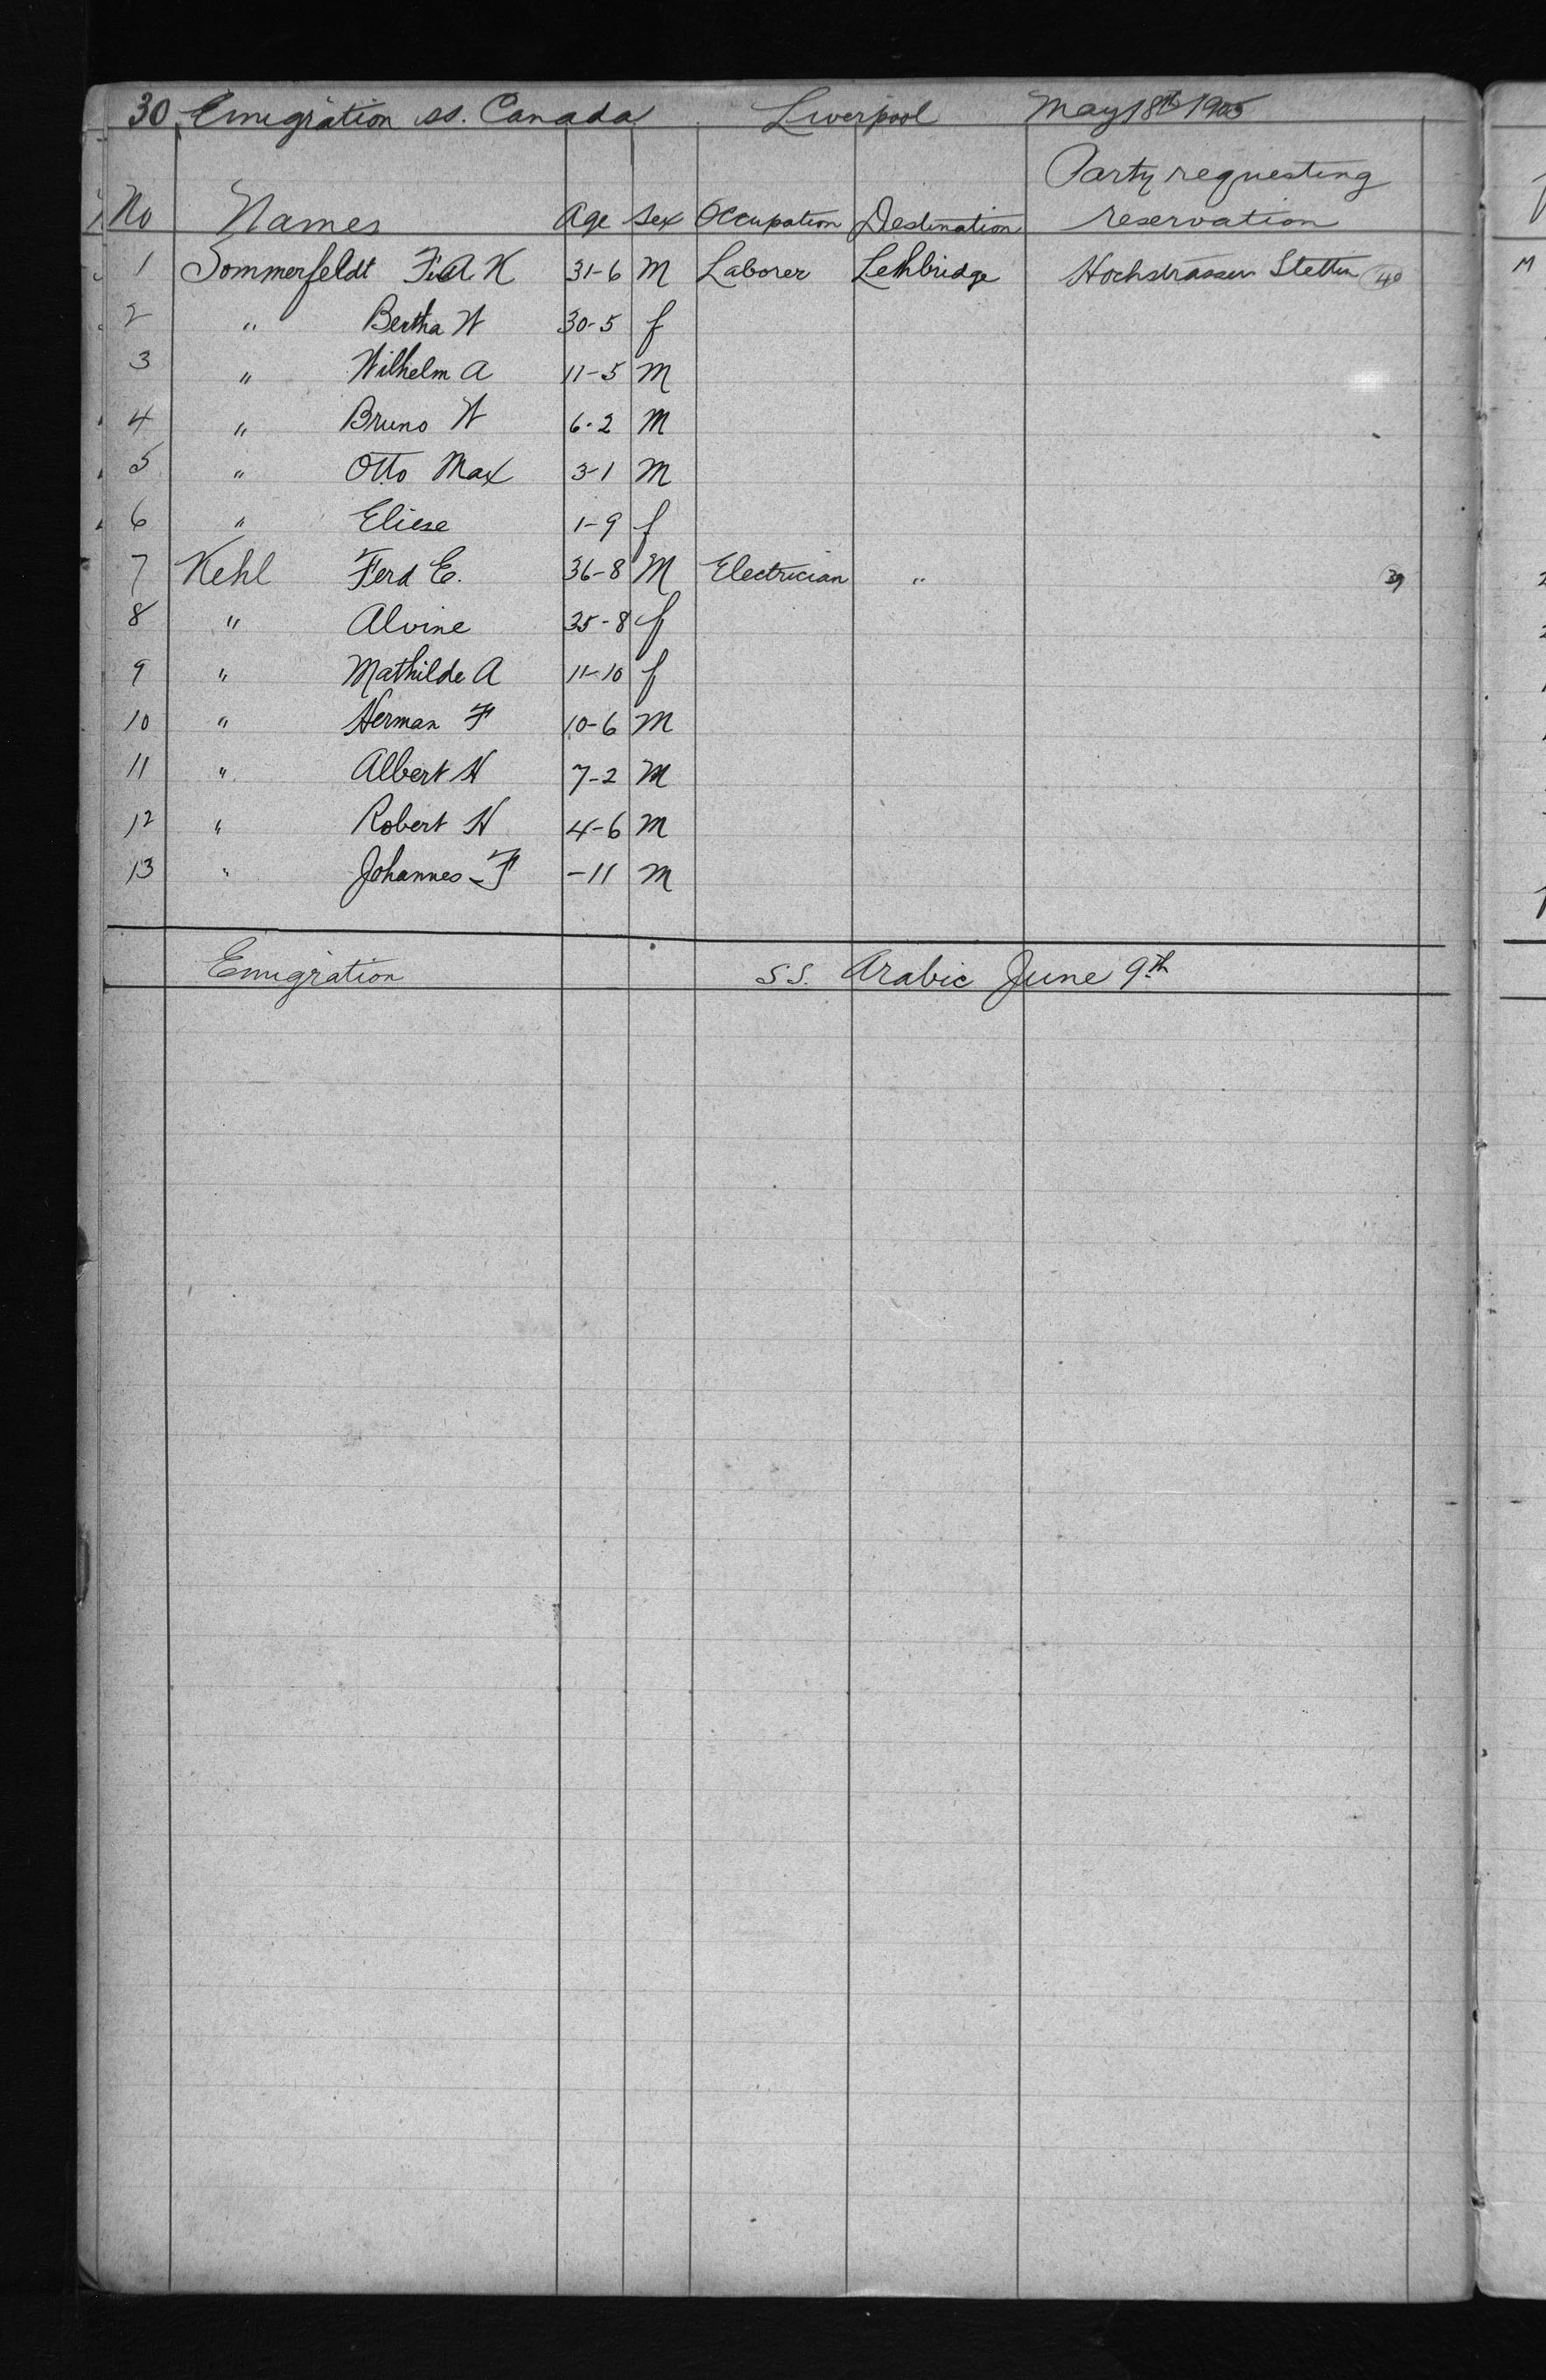 30 Emigration ss. Canada Liverpool May 18th 1905
No Names Age Sex Occupation Destination Party requesting reservation
1 Sommerfeldt F.A K 31-6 M Laborer Lethbridge Hochstrasser Stettin 40
2 " Bertha W 30-5 f
3 " Wilhelm A 11-5 M
4 " Bruno W 6-2 M
5 " Otto Max 3-1 M
6 " Eliese 1-9 f
7 Kehl Ferd E. 36-8 M Electrician " 39
8 " Alvine 35-8 f
9 " Mathilde A 11-10 f
10 " Herman F 10-6 M
11 " Albert H 7-2 M
12 " Robert H 4-6 M
13 " Johannes F -11 M
Emigration S.S. Arabic June 9th